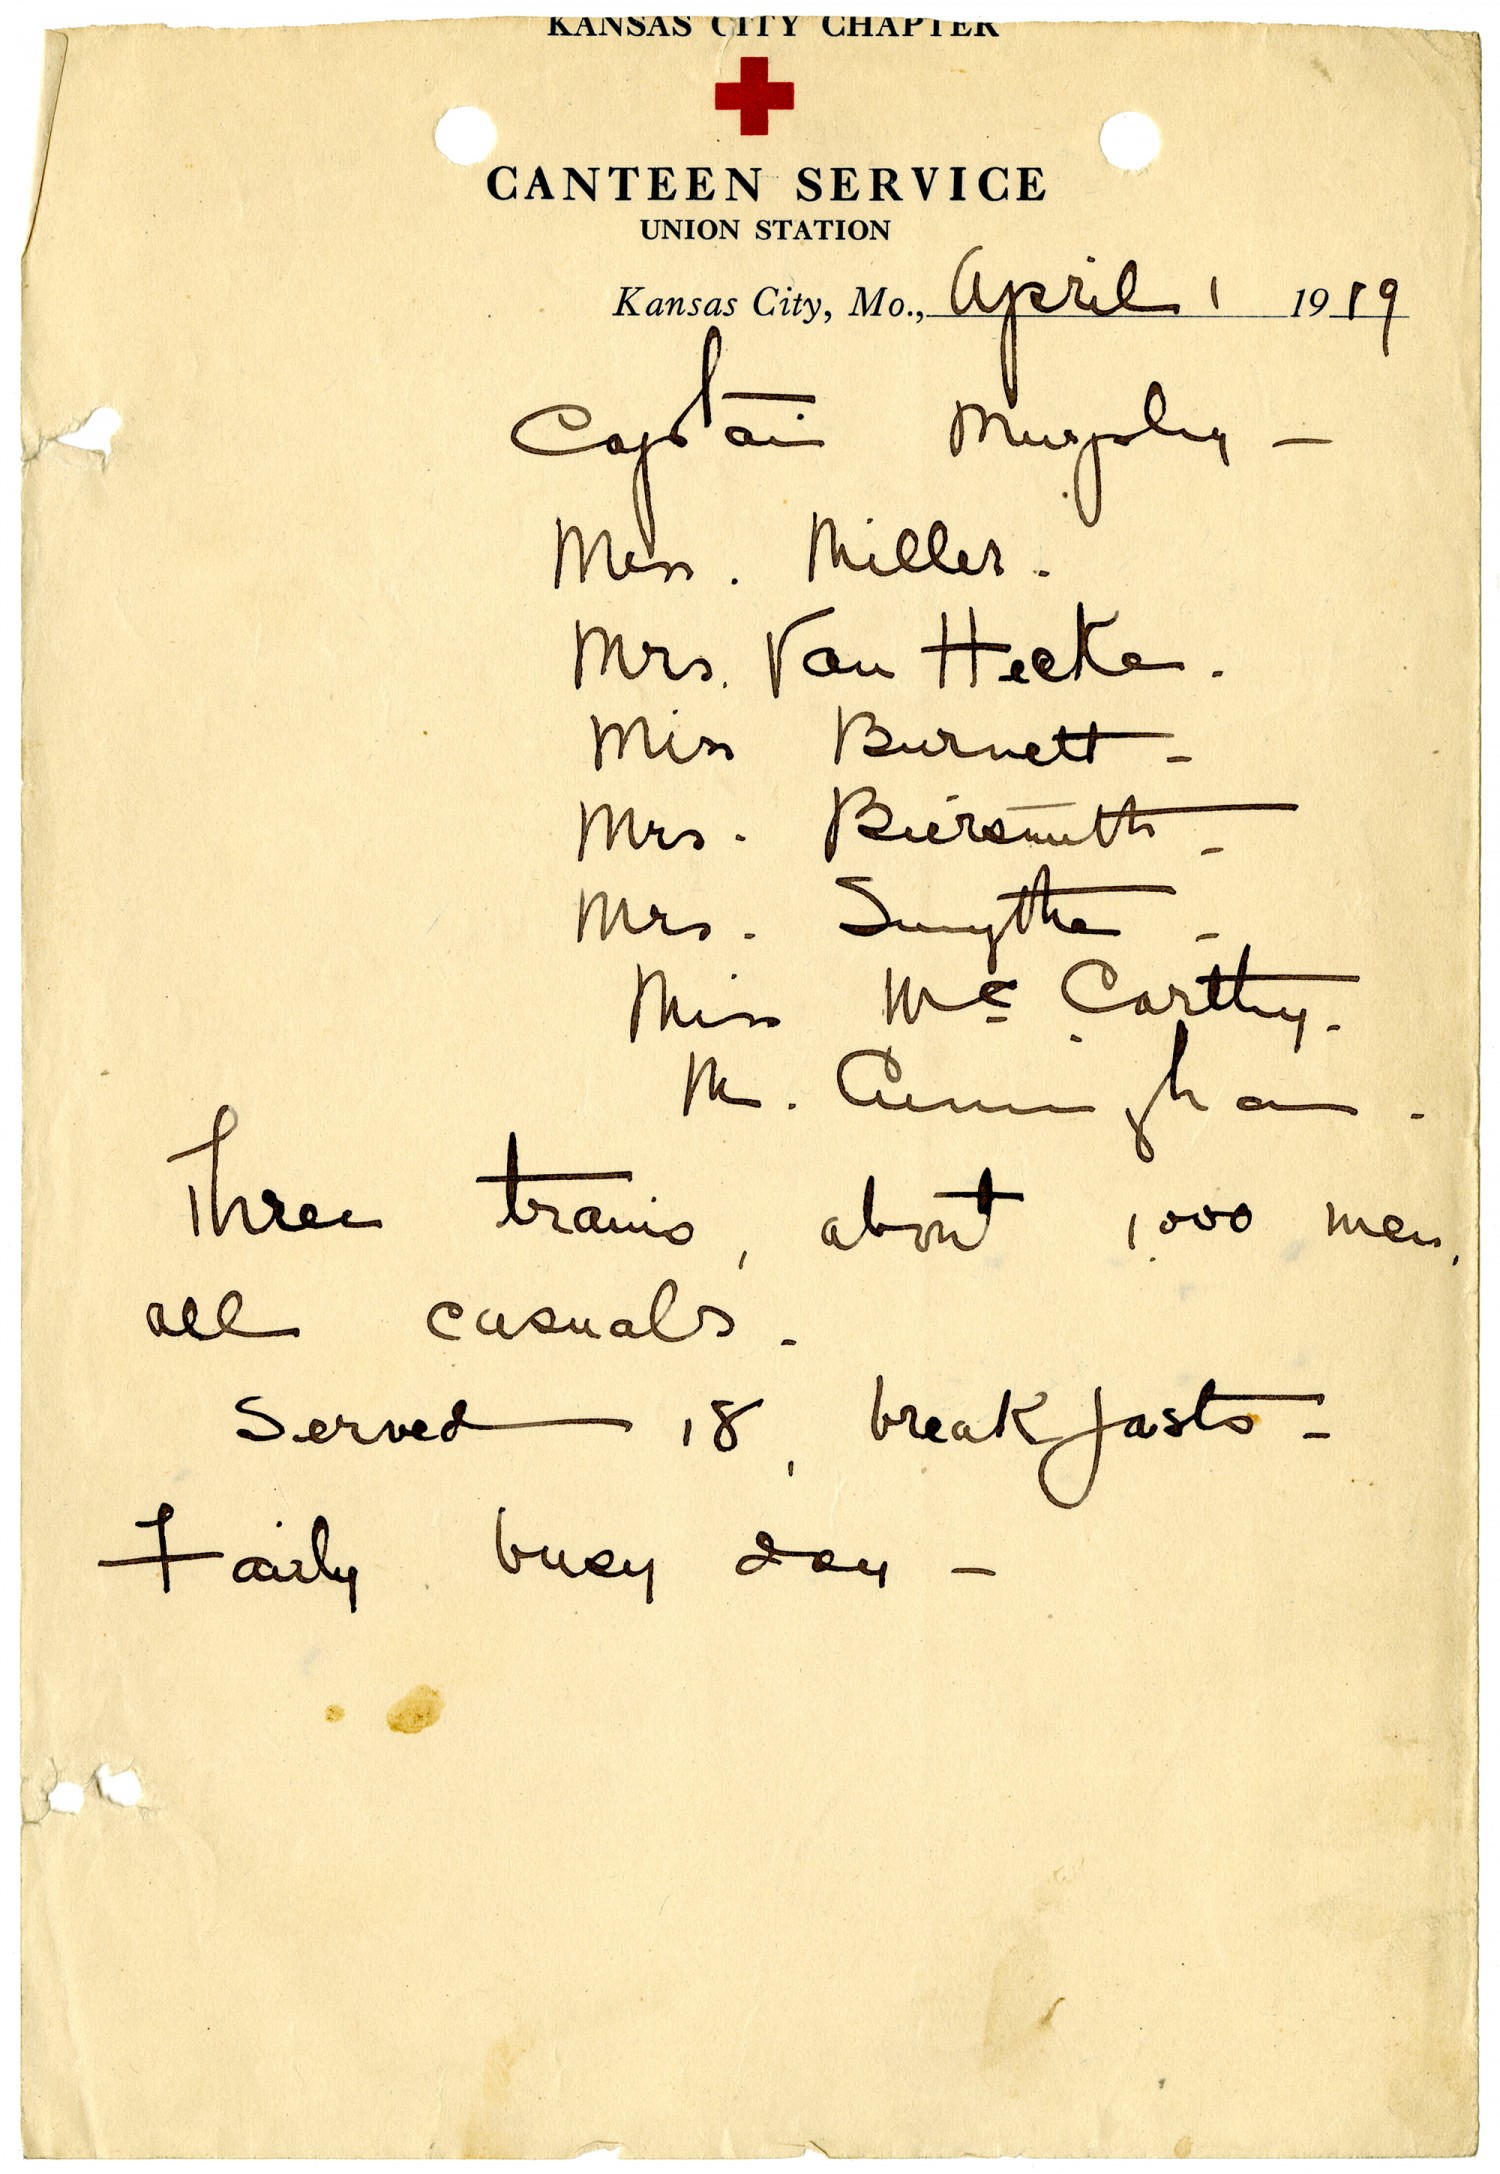 KANSAS CITY CHAPTER
CANTEEN SERVICE
UNION STATION
Kansas City, Mo., April 1 1919
Captain Murphy -
Mrs. Miller.
Mrs. Van Hecke.
Miss Burnett -
Mrs. Biersmith -
Mrs. Smythe -
Miss Mc Carthy.
M. Cunningham.
Three trains, about 1,000 men,
all casuals.
Served 18, breakfasts -
Fairly busy day -